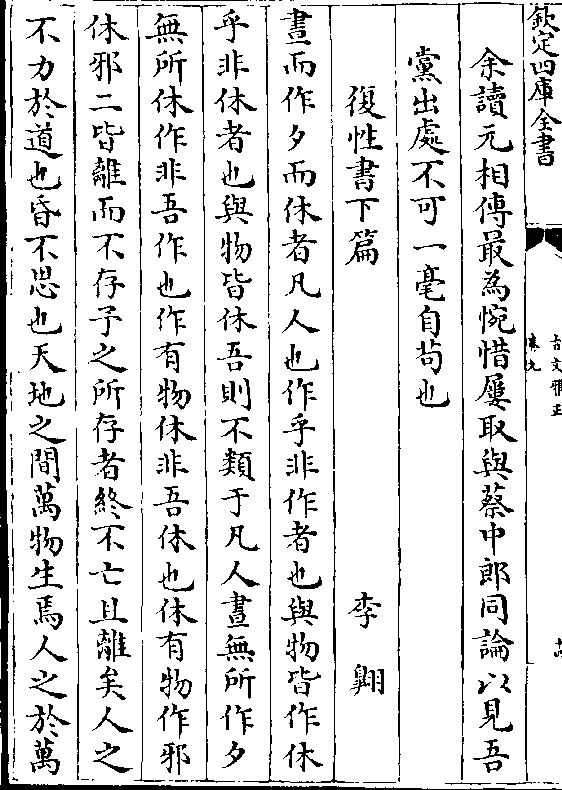 欽定四庫全書
古文雅正
卷九
余讀元相傳最為惋惜屢取與蔡中郎同論以見吾
黨出處不可一毫自茍也
復性書下篇 李翺
晝而作夕而休者凡人也作乎非作者也與物皆作休
乎非休者也與物皆休吾則不類于凡人晝無所作夕
無所休作非吾作也作有物休非吾休也休有物作邪
休邪二皆離而不存予之所存者終不亡且離矣人之
不力於道也昏不思也天地之間萬物生焉人之於萬